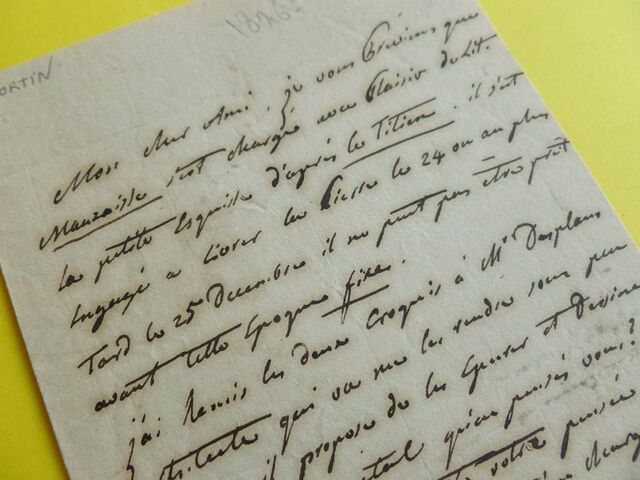 ORTIN
1826
Mon cher Ami. je vous Préviens que
Mauzaisse s'est chargé avec Plaisir de
la petite Esquisse d'après le Titien. il s'est
Engagé a Livrer la Pierre le 24 ou au plus
Tard le 25 Decembre il ne peut pas être prêt
avant cette Epoque fixée.
j'ai Remis les deux Croquis à Mr Desplans
qui va me les rendre sous peu
il propose de les Graver et Dessiner
qu'en pensés vous?
votre pensée